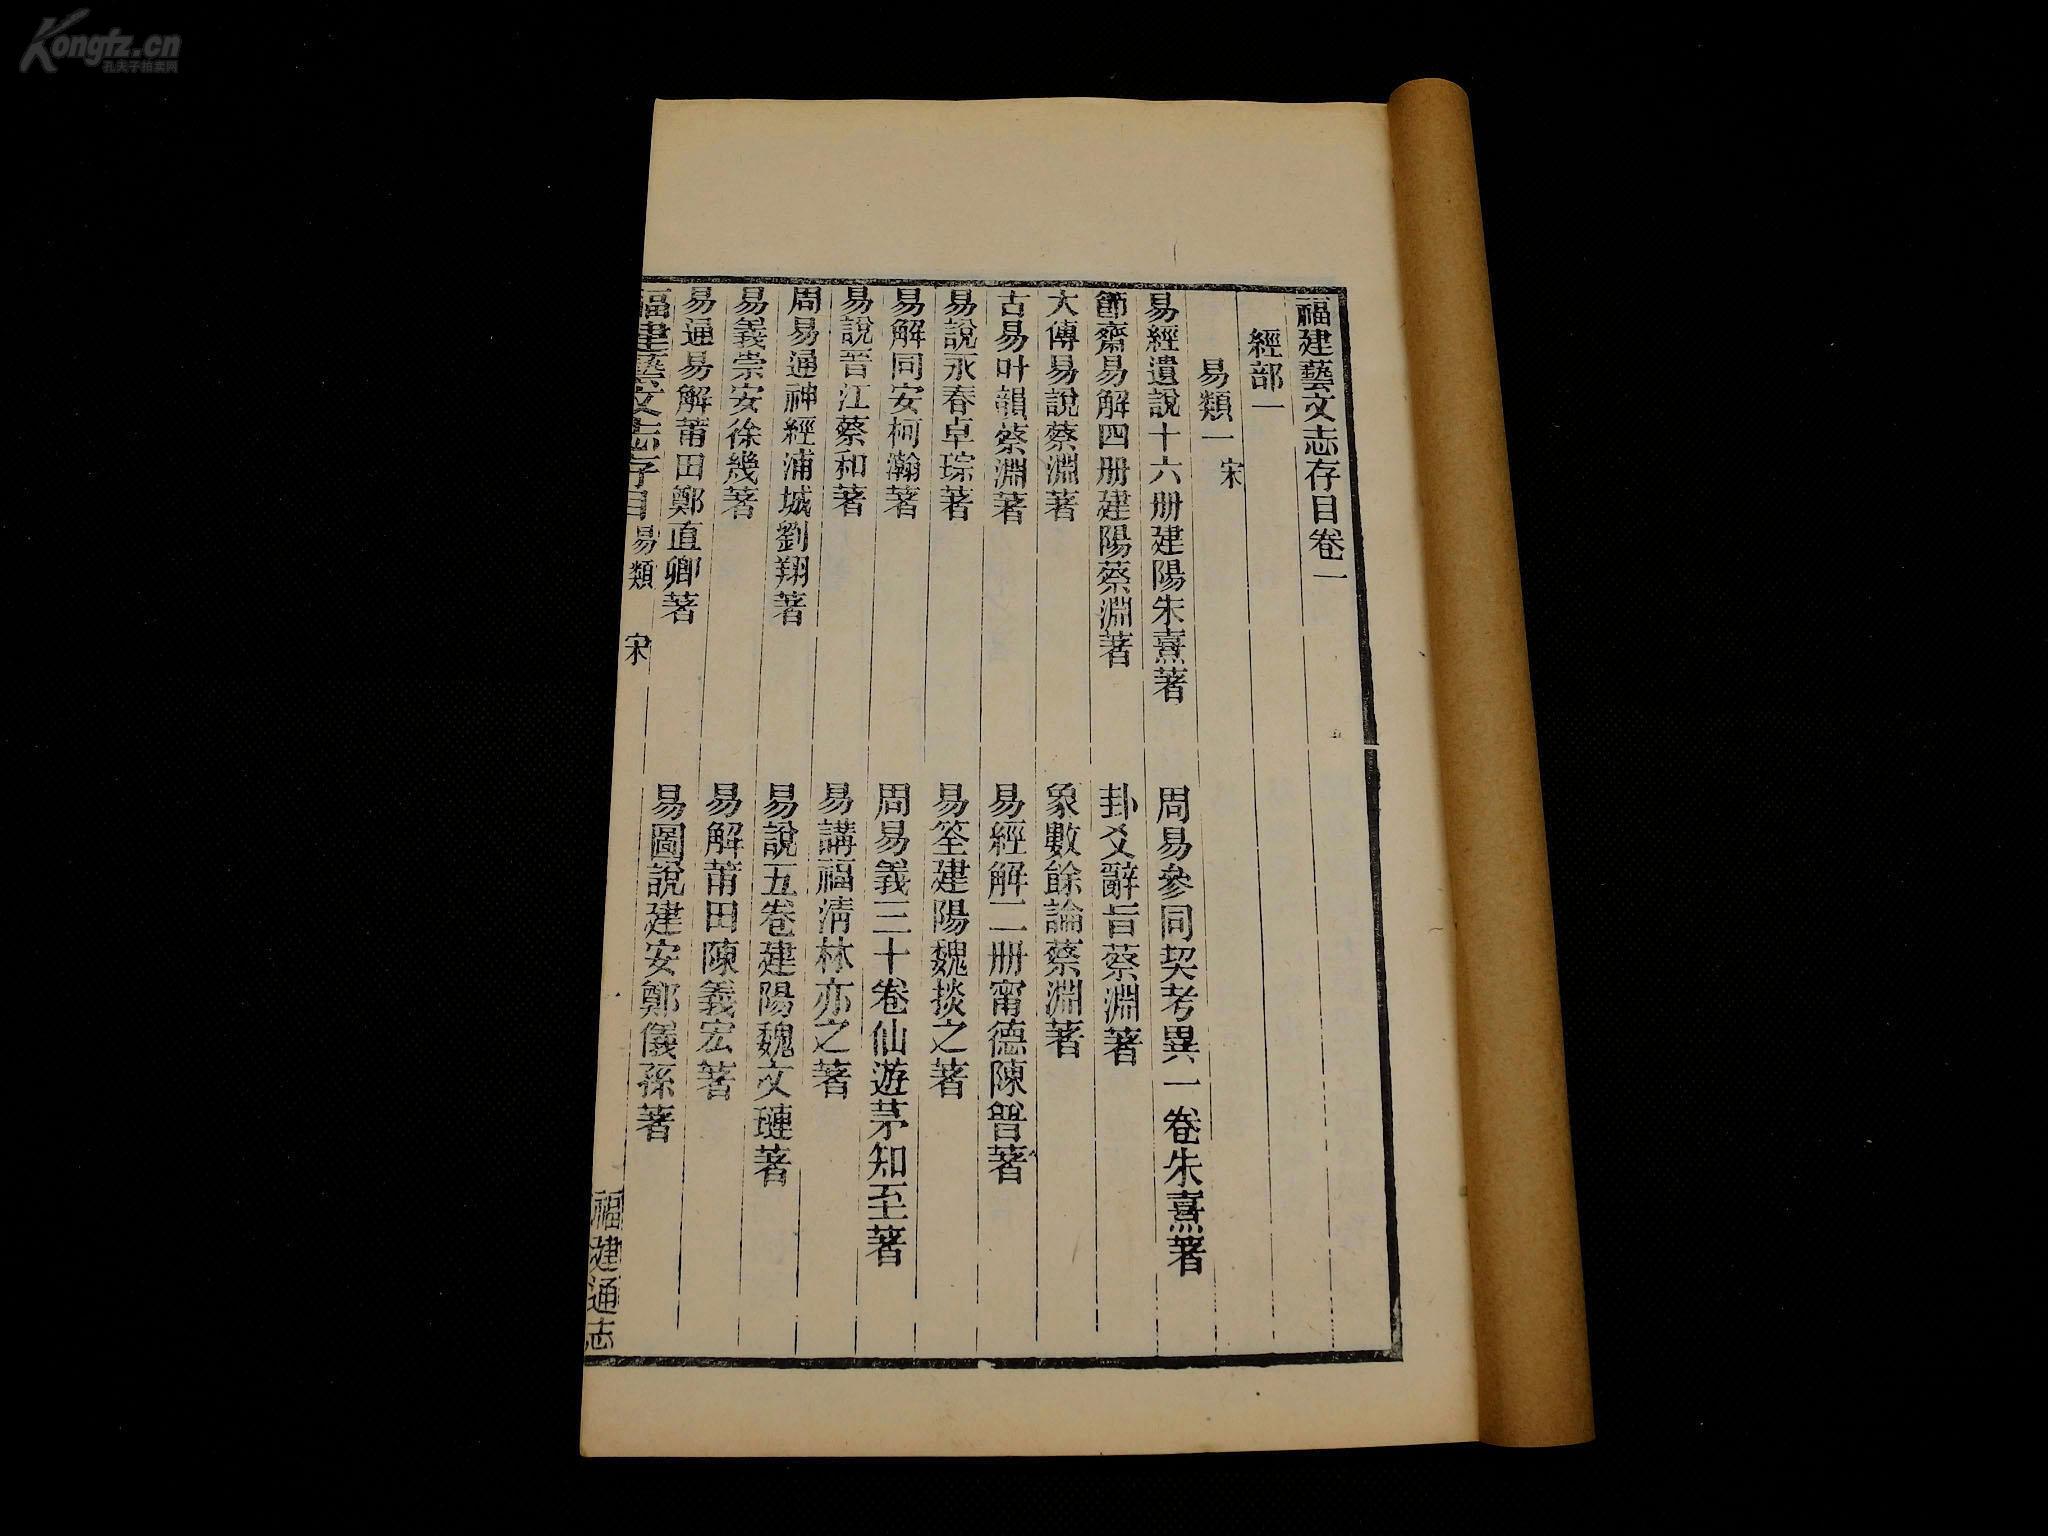 Kongfz.cn
孔夫子拍卖网
福建藝文志存目卷一
經部一
易類一 宋
易經遺說十六册建陽朱熹著 周易參同契考異一卷朱熹著
節齋易解四册建陽蔡淵著 卦爻辭旨蔡淵著
大傳易說蔡淵著 象數餘論蔡淵著
古易叶韻蔡淵著 易經解二册甯德陳普著
易說永春卓琮著 易筌建陽魏掞之著
易解同安柯瀚著 周易義三十卷仙遊茅知至著
易說晉江蔡和著 易講福淸林亦之著
周易通神經浦城劉翔著 易說五卷建陽魏文璉著
易義崇安徐幾著 易解莆田陳義宏著
易通易解莆田鄭直卿著 易圖說建安鄭儀孫著
福建藝文志存目 易類 宋 福建通志